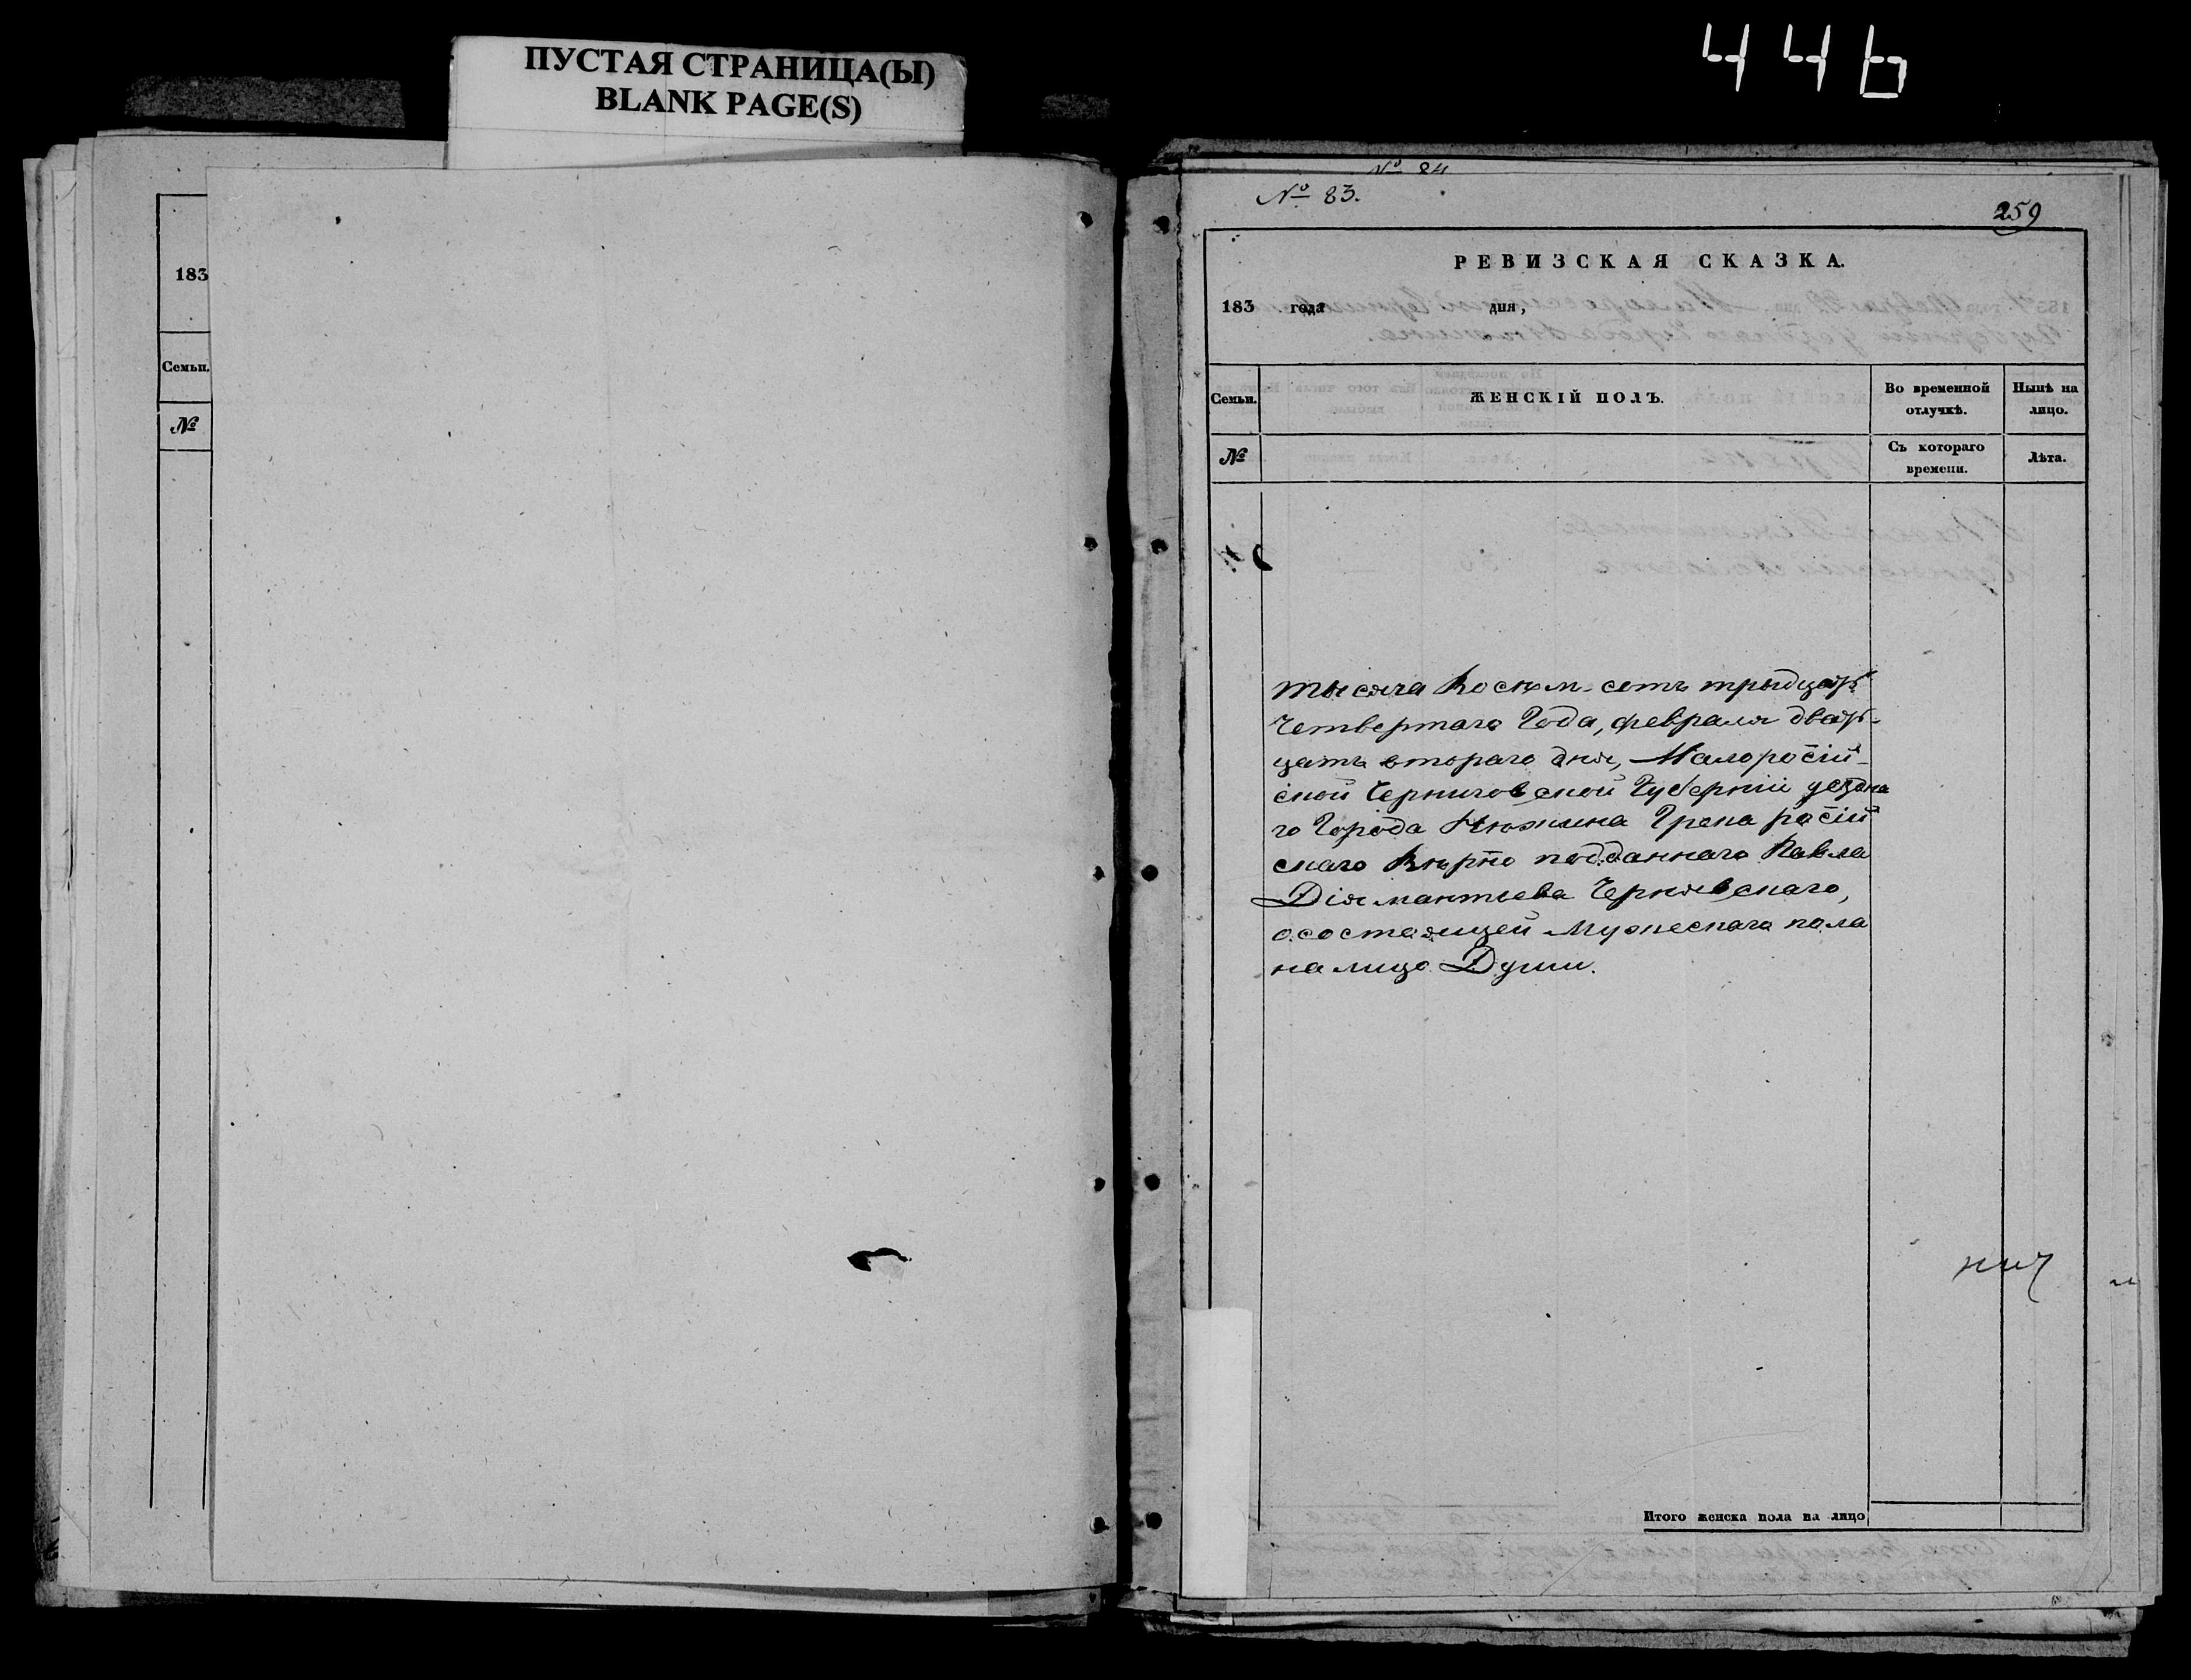 ПУСТАЯ СТРАНИЦА(Ы)
BLANK PAGE(S)
446
183
Семьи.
№
№ 84
№ 83.
259
РЕВИЗСКАЯ СКАЗКА.
183 года дня,
Семьи.
ЖЕНСКІЙ ПОЛЪ.
Во временной отлучкѣ.
Нынѣ на лицо.
№
Съ котораго времени.
Лѣта.
тысяча восем-сотъ трыдцать
Четвертаго Года, февраля двать-
цать втораго дня, Малоросій-
ской Черниговской Губерніи уездна
го Города Нѣжина Грека расій
скаго Вѣрно подданнаго Павла
Діямантьева Чернявскаго,
о состоящей Мужескаго пола
на лицо Души.
Итого женска пола на лицо